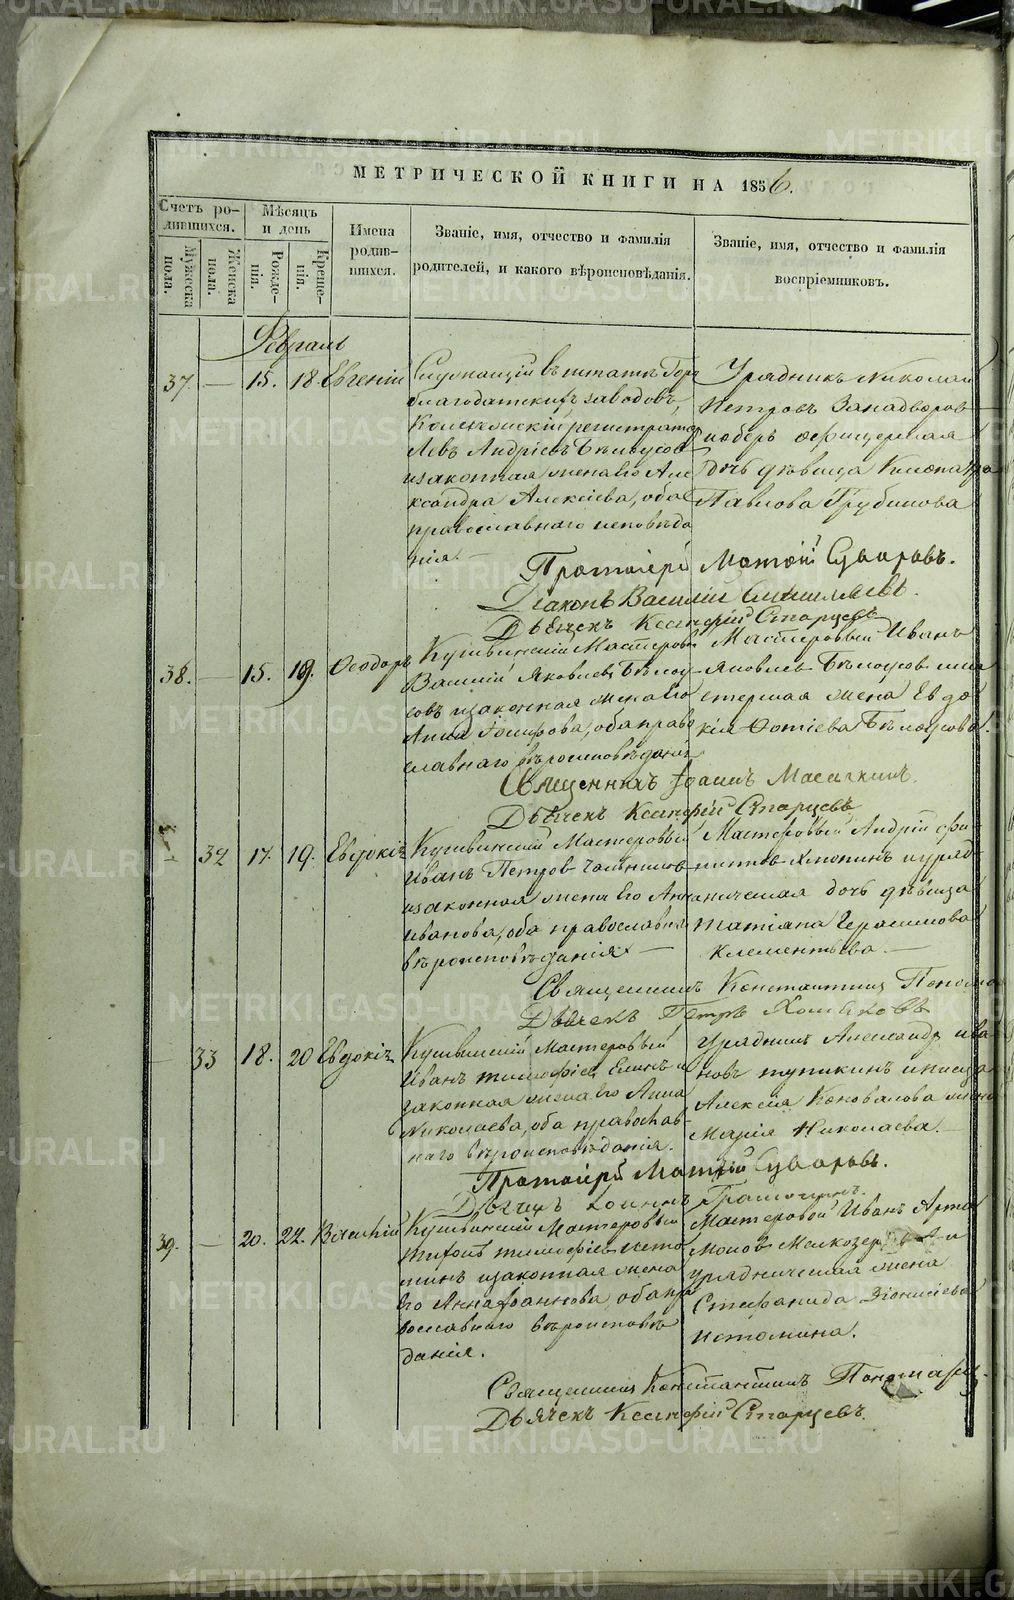 МЕТРИЧЕСКОЙ КНИГИ НА 1856.
Счетъ ро-
дившихся.
Мужеска
пола.
Женска
пола.
Мѣсяцъ
и день
Рожде-
нія.
Креще-
нія.
Имена
родив-
шихся.
Званіе, имя, отчество и фамилія
родителей, и какого вѣроисповѣданія.
Званіе, имя, отчество и фамилія
воспріемниковъ.
Февраль
37. — 15. 18. Евгеній
Служащій въ штатѣ Горо
благодатскихъ заводовъ,
Коллежскій регистраторъ
Левъ Андріевъ
и законная жена его Але
ксандра Алексіева, оба
православнаго исповѣда
нія. —
Урядникъ Николай
Петровъ Западворов
и оберъ офицерская
дочь дѣвица Клеопатра
Павлова Трубинова
Протоіерей
Діаконъ Василій
Дьячекъ Ксенофій Старцевъ
38. — 15. 19. Ѳеодоръ
Кушвинскій Мастеров
Василій Яковлевъ Бѣлоу
совъ и законная жена его
Анна Іосифова, оба право
славнаго вѣроисповѣданія
Мастеровый Иванъ
Яковлевъ Бѣлоусов и ма
стерская жена Евдо
кія Фотіева Бѣлоусова.
Священникъ Іоаннъ
Дьячекъ Ксенофій Старцевъ
— 32 17. 19. Евдокія
Кушвинскій Мастеровый
Иванъ Петров
и законная жена его Анна
Иванова, оба православна
вѣроисповѣданія —
Мастеровый Андрій Фи
липповъ и уряд
ническая дочь дѣвица
Татіана Герасимова
Клементьева. —
Священникъ Константинъ Пономар
Дьячекъ Петръ Хомяковъ
— 33 18. 20 Евдокія
Кушвинскій Мастеровый
Иванъ Тимофіевъ и
законная жена его Анна
Николаева, оба православ
наго вѣроисповѣданія.
Урядникъ Александръ Ива
новъ Тупикинъ и писца
Алексія Коновалова жена
Марія Николаева. —
Протоіерей
Дьячекъ Іоаннъ
39. — 20. 22. Василій
Кушвинскій Мастеровый
Тимофіевъ Исто
минъ и законная жена
его Анна Іоаннова, оба пра
вославнаго вѣроисповѣ
данія.
Мастеровой Иванъ Арта
моновъ и
урядническая жена
Стефанида Діонисіева
Истомина.
Священникъ Константинъ Пономар
Дьячекъ Ксенофій Старцевъ.
METRIKI.GASO-URAL.RU